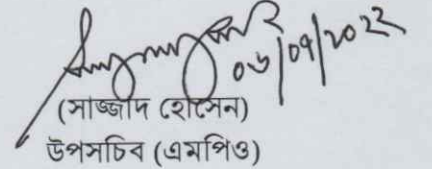 ০৬/০৭/২০২২
(সাজ্জাদ হোসেন)
উপসচিব (এমপিও)